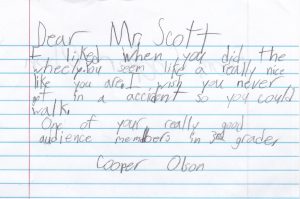 Dear Mr Scott
I liked when you did the
wheely. You seem like a really nice
like you are. I wish you never
got in a accident so you could
walk.
One of your really good
audience members in 3rd grade
Cooper Olson